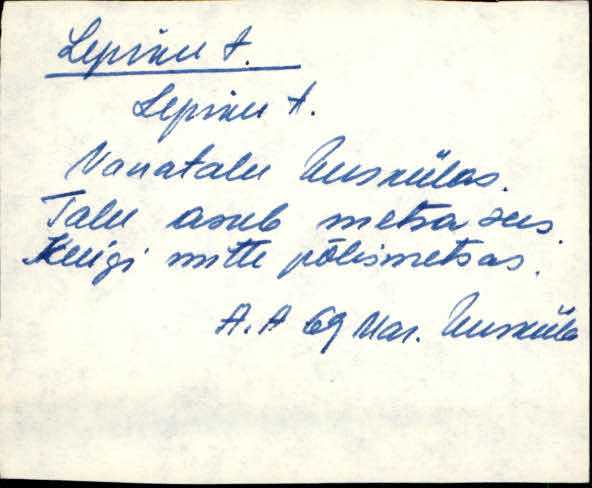 Lepiku t.
Lepiku t.
Vanatalu Uuskülas.
Talu asub metsa sees.
Kuigi mitte põlismetsas.
A. A 69 Mar. Uusküla